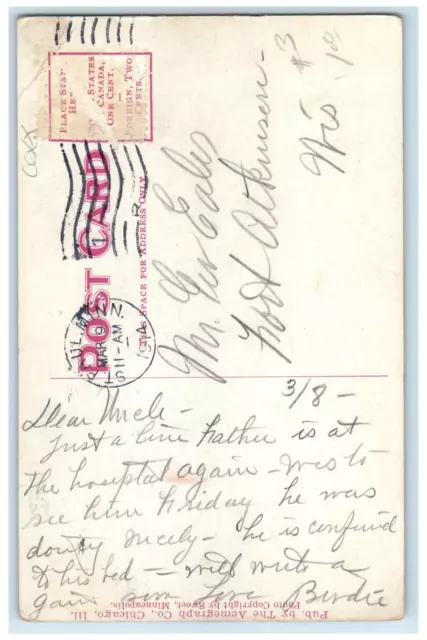 PLACE STAMP HERE
STATES
CANADA,
ONE CENT.
FOREIGN, TWO
CENTS.
POST CARD
THIS SPACE FOR ADDRESS ONLY.
ST. PAUL, MINN.
MAR 9
11-AM
Mr. Geo Eales
Fort Atkinson-
Wis
#3
3/8-
Dear Uncle-
Just a line Father is at
the hospital again - was to
see him Friday he was
doing nicely - he is confined
to his bed - will write a
gain soon Love Birdie
Pub. by The Acmegraph Co., Chicago, Ill.
Photo Copyright by Sweet, Minneapolis.